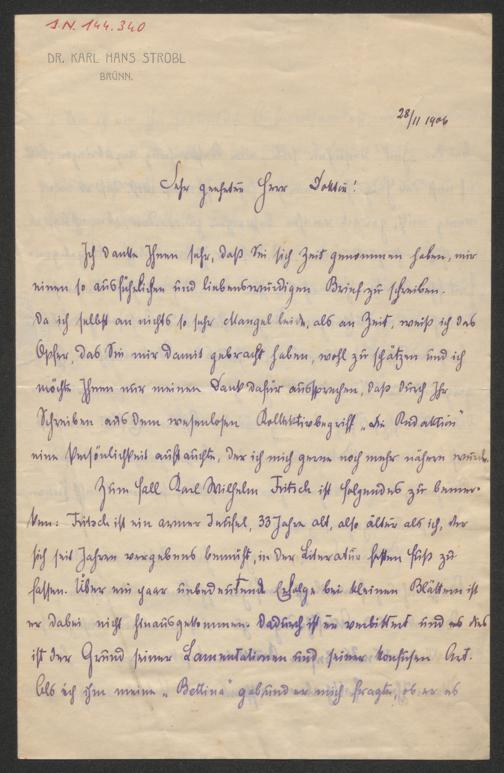 I.N. 144.340
DR. KARL HANS STROBL
BRÜNN.
28/11 1906
Sehr geehrter Herr Doktor!
Ich danke Ihnen sehr, daß Sie sich Zeit genommen haben, mir
einen so ausführlichen und liebenswürdigen Brief zu schreiben.
Da ich selbst an nichts so sehr Mangel leide, als an Zeit, weiß ich das
Opfer, das Sie mir damit gebracht haben, wohl zu schätzen und ich
möchte Ihnen nur meinen Dank dafür aussprechen, daß durch Ihr
Schreiben aus dem wesenlosen Kollektivbegriff „die Redaktion"
eine Persönlichkeit auftauchte, der ich mich gerne noch mehr nähern würde.
Zum Fall Karl Wilhelm Fritsch ist folgendes zu bemer-
ken: Fritsch ist ein armer Teufel, 33 Jahre alt, also älter als ich, der
sich seit Jahren vergebens bemüht, in der Literatur festen Fuß zu
fassen. Über ein paar unbedeutende Erfolge bei kleinen Blättern ist
er dabei nicht hinausgekommen. Dadurch ist er verbittert und es das
ist der Grund seiner Lamentationen und seiner konfusen Art.
Als ich ihm meine „Bettina" gab und er mich fragte, ob er es